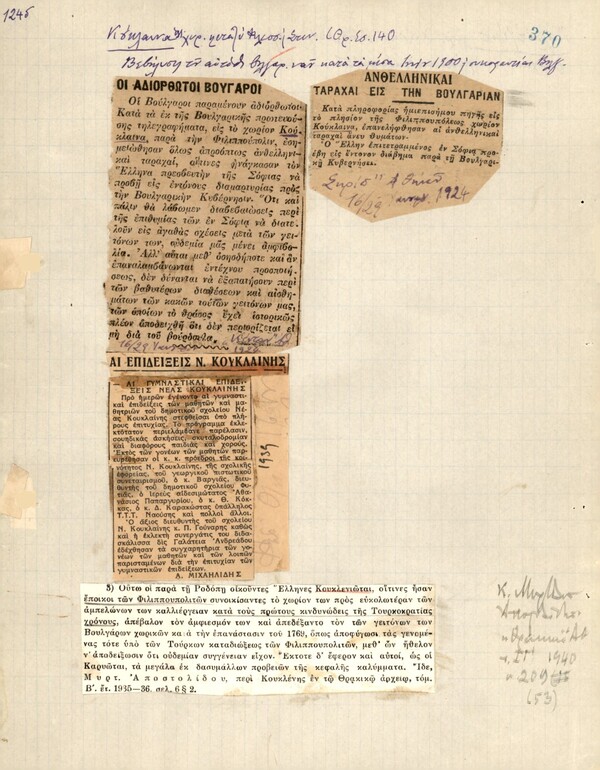 1245
370
ΟΙ ΑΔΙΟΡΘΩΤΟΙ ΒΟΥΓΑΡΟΙ
Οἱ Βούλγαροι παραμένουν ἀδιόρθωτοι
Κατὰ τὰ ἐκ τῆς Βουλγαρικῆς πρωτευού-
σης τηλεγραφήματα, εἰς τὸ χωρίον Κού-
κλαινα, παρὰ τὴν Φιλιππούπολιν, ἐση-
μειώθησαν ὅλως ἀπροόπτως ἀνθελληνι-
καὶ ταραχαί, αἵτινες ἠνάγκασαν τὸν
Ἕλληνα πρεσβευτὴν τῆς Σόφιας νὰ
προβῇ εἰς ἐντόνους διαμαρτυρίας πρὸς
τὴν Βουλγαρικὴν Κυβέρνησιν. Ὅτι καὶ
πάλιν θὰ λάβωμεν διαβεβαιώσεις περὶ
τῆς ἐπιθυμίας τῶν ἐν Σόφιᾳ νὰ διατε-
λοῦν εἰς ἀγαθὰς σχέσεις μετὰ τῶν γει-
τόνων των, οὐδεμία μᾶς μένει ἀμφιβο-
λία. Ἀλλ' αὗται μεθ' ὁσησδήποτε καὶ ἂν
ἐπαναλαμβάνωνται ἐντέχνου προσποιή-
σεως, δὲν δύνανται νὰ ἐξαπατήσουν περὶ
τῶν βαθυτέρων διαθέσεων καὶ αἰσθη-
μάτων τῶν κακῶν τούτων γειτόνων μας,
τῶν ὁποίων τὸ θράσος ἔχει ἱστορικῶς
πλέον ἀποδειχθῆ ὅτι δὲν περιορίζεται εἰ
μὴ διὰ τοῦ βούρδουλα.
ΑΝΘΕΛΛΗΝΙΚΑΙ
ΤΑΡΑΧΑΙ ΕΙΣ ΤΗΝ ΒΟΥΛΓΑΡΙΑΝ
Κατὰ πληροφορίας ἡμιεπισήμου πηγῆς εἰς
τὸ πλησίον τῆς Φιλιππουπόλεως χωρίον
Κούκλαινα, ἐπανελήφθησαν αἱ ἀνθελληνικαὶ
ταραχαὶ ἄνευ θυμάτων.
Ὁ Ἕλλην ἐπιτετραμμένος ἐν Σόφιᾳ προ-
έβη εἰς ἔντονον διάβημα παρὰ τῇ Βουλγαρι-
κῇ Κυβερνήσει.
16/29 1924
ΑΙ ΕΠΙΔΕΙΞΕΙΣ Ν. ΚΟΥΚΛΑΙΝΗΣ
ΑΙ ΓΥΜΝΑΣΤΙΚΑΙ ΕΠΙΔΕΙ-
ΞΕΙΣ ΝΕΑΣ ΚΟΥΚΛΑΙΝΗΣ
Πρὸ ἡμερῶν ἐγένοντο αἱ γυμναστι-
καὶ ἐπιδείξεις τῶν μαθητῶν καὶ μα-
θητριῶν τοῦ δημοτικοῦ σχολείου Νέ-
ας Κουκλαίνης στεφθεῖσαι ὑπὸ πλή-
ρους ἐπιτυχίας. Τὸ πρόγραμμα ἐκλε-
κτότατον περιελάμβανε παρέλασιν,
σουηδικὰς ἀσκήσεις, σκυταλοδρομίαν
καὶ διαφόρους παιδιὰς καὶ χορούς.
Ἐκτὸς τῶν γονέων τῶν μαθητῶν παρ-
ευρέθησαν οἱ κ. κ. πρόεδροι τῆς κοι-
νότητος Ν. Κουκλαίνης, τῆς σχολικῆς
ἐφορείας, τοῦ γεωργικοῦ πιστωτικοῦ
συνεταιρισμοῦ, ὁ κ. Βαργιᾶς, διευ-
θυντὴς τοῦ δημοτικοῦ σχολείου Φυ-
τιᾶς, ὁ ἱερεὺς αἰδεσιμώτατος Ἀθα-
νάσιος Παπαργυρίου, ὁ κ. Θ. Κόκ-
κας, ὁ κ. Δ. Καρακώστας ὑπάλληλος
Τ.Τ.Τ. Ναούσης καὶ πολλοὶ ἄλλοι.
Ὁ ἄξιος διευθυντὴς τοῦ σχολείου
Ν. Κουκλαίνης κ. Π. Γούναρης καθὼς
καὶ ἡ ἐκλεκτὴ συνεργάτις του διδα-
σκάλισσα δὶς Γαλάτεια Ἀνδρεάδου
ἐδέχθησαν τὰ συγχαρητήρια τῶν γο-
νέων τῶν μαθητῶν καὶ τῶν λοιπῶν
παρισταμένων διὰ τὴν ἐπιτυχίαν τῶν
γυμναστικῶν ἐπιδείξεων.
Α. ΜΙΧΑΗΛΙΔΗΣ
1939
5) Οὕτω οἱ παρὰ τῇ Ροδόπῃ οἰκοῦντες Ἕλληνες Κουκλενιῶται, οἵτινες ἦσαν
ἔποικοι τῶν Φιλιππουπολιτῶν συνοικίσαντες τὸ χωρίον των πρὸς εὐκολωτέραν τῶν
ἀμπελώνων των καλλιέργειαν κατὰ τοὺς πρώτους κινδυνώδεις τῆς Τουρκοκρατίας
χρόνους, ἀπέβαλον τὸν ἀμφιεσμόν των καὶ ἀπεδέξαντο τὸν τῶν γειτόνων των
Βουλγάρων χωρικῶν κατὰ τὴν ἐπανάστασιν τοῦ 1769, ὅπως ἀποφύγωσι τὰς γενομέ-
νας τότε ὑπὸ τῶν Τούρκων καταδιώξεις τῶν Φιλιππουπολιτῶν, μεθ' ὧν ἤθελον
ν' ἀποδείξωσιν ὅτι οὐδεμίαν συγγένειαν εἶχον. Ἔκτοτε δ' ἔφερον καὶ αὐτοί, ὡς οἱ
Καρυῶται, τὰ μεγάλα ἐκ δασυμάλλων προβειῶν τῆς κεφαλῆς καλύμματα. Ἴδε,
Μυρτ. Ἀποστολίδου, περὶ Κουκλένης ἐν τῷ Θρακικῷ ἀρχείῳ, τόμ.
Β'. ἔτ. 1935—36. σελ. 6 § 2.
1940
209
(53)